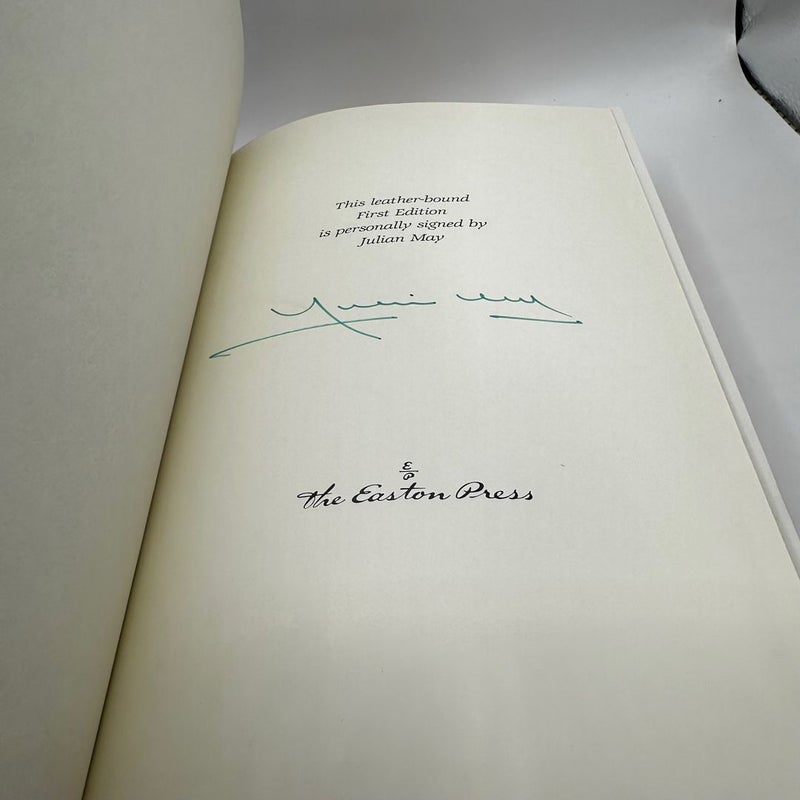 This leather-bound
First Edition
is personally signed by
Julian May
Julian May
E
P
the Easton Press